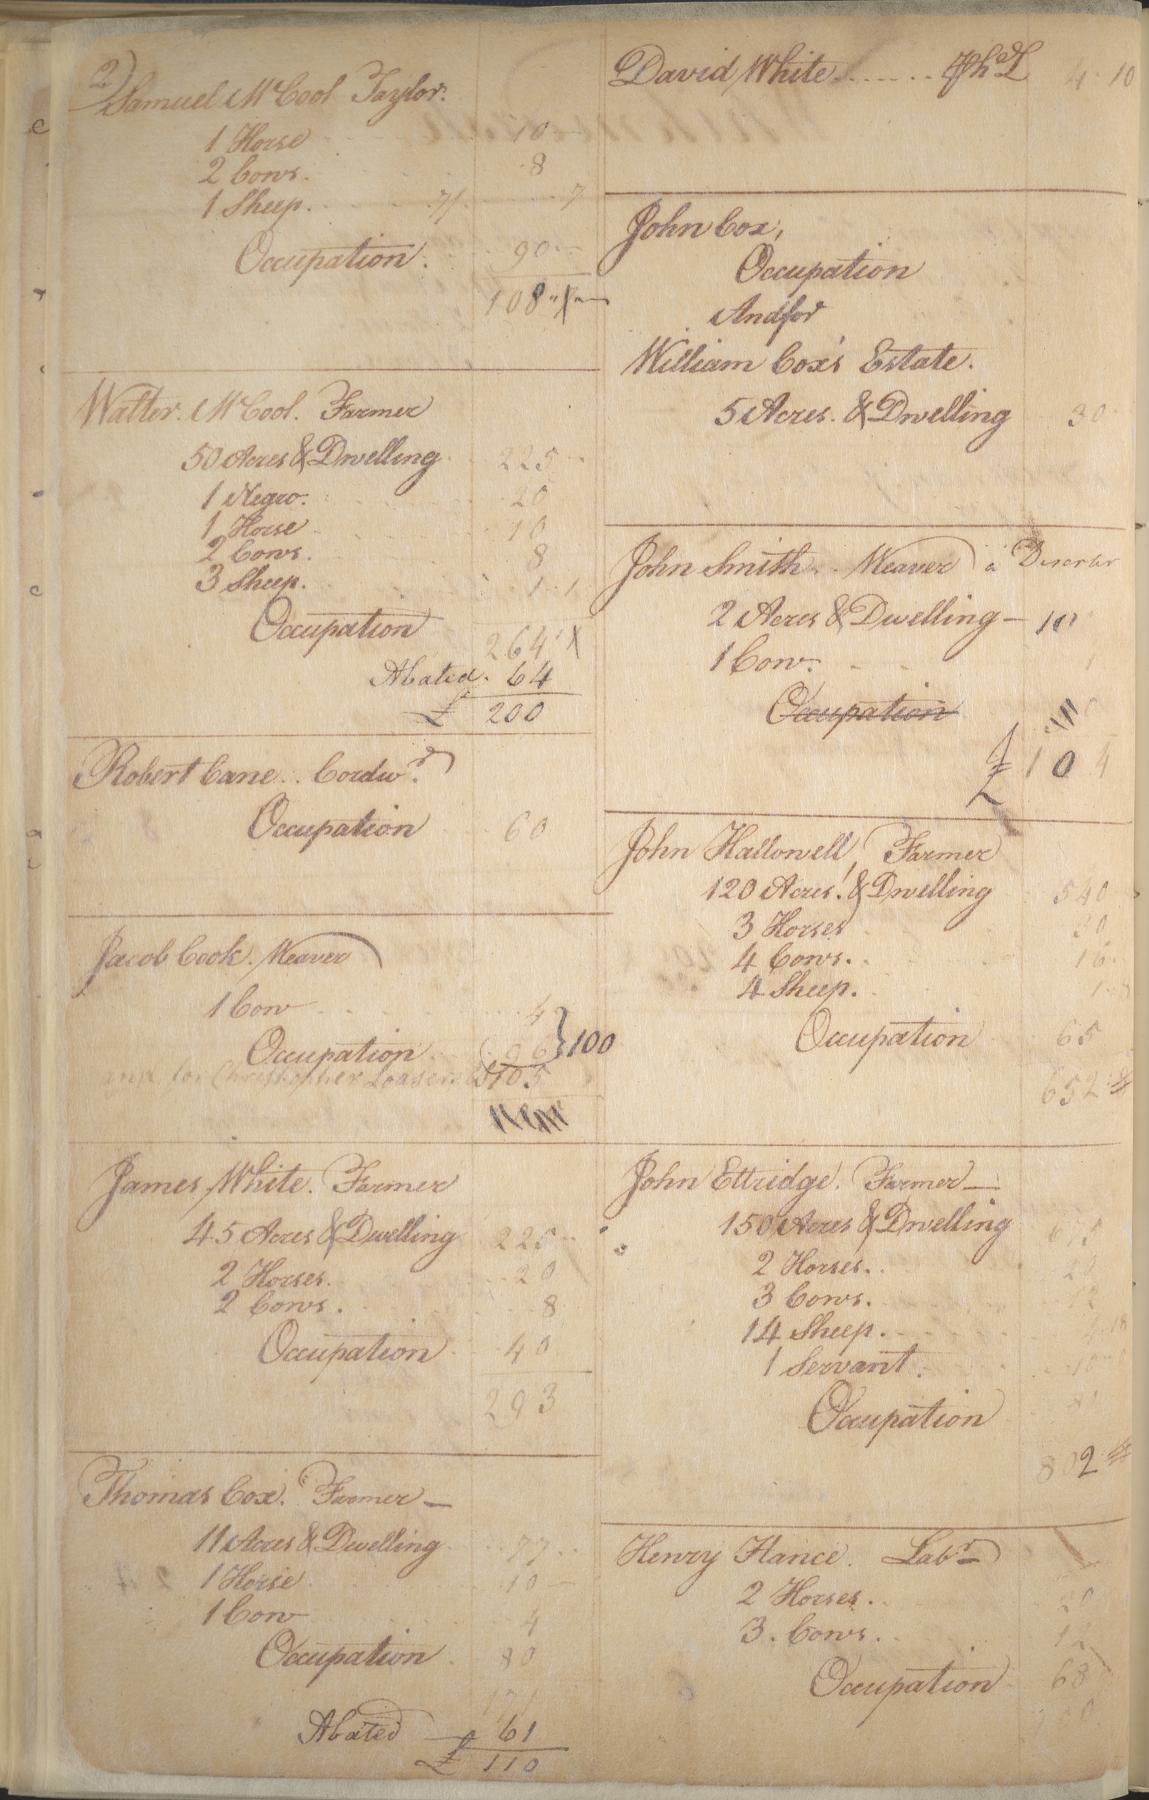 2)
Samuel McCool Taylor.
1 Horse 10
2 Cows. 8
1 Sheep. 7/ 7
Occupation. 90
108 " X "
Walter. McCool. Farmer
50 Acres & Dwelling 225
1 Negro. 20
1 Horse 10
2 Cows. 8
3 Sheep. 1 1
Occupation
264 X
Abated. 64
£ 200
Robert Cane. Cordwr.
Occupation 60
Jacob Cook. Weaver
1 Cow 4
Occupation 96 } 100
and for Christopher 105
James White. Farmer
45 Acres & Dwelling 225
2 Horses. 20
2 Cows. 8
Occupation 40
293
Thomas Cox. Farmer
11 Acres & Dwelling 77
1 Horse 10
1 Cow 4
Occupation 80
171
Abated 61
£ 110
David White 4 10
John Cox,
Occupation
And for
William Cox's Estate.
5 Acres. & Dwelling 30
John Smith. Weaver a Deserter
2 Acres & Dwelling 10
1 Cow.
Occupation
£ 10 4
John Hallowell, Farmer
120 Acres. & Dwelling 540
3 Horses 30
4 Cows. 16
4 Sheep. 1
Occupation 65
652 8
John Ettridge. Farmer
150 Acres & Dwelling 675
2 Horses. 20
3 Cows. 12
14 Sheep. 18
1 Servant.
Occupation
802
Henry Hance. Labr
2 Horses. 20
3. Cows. 12
Occupation 68
100